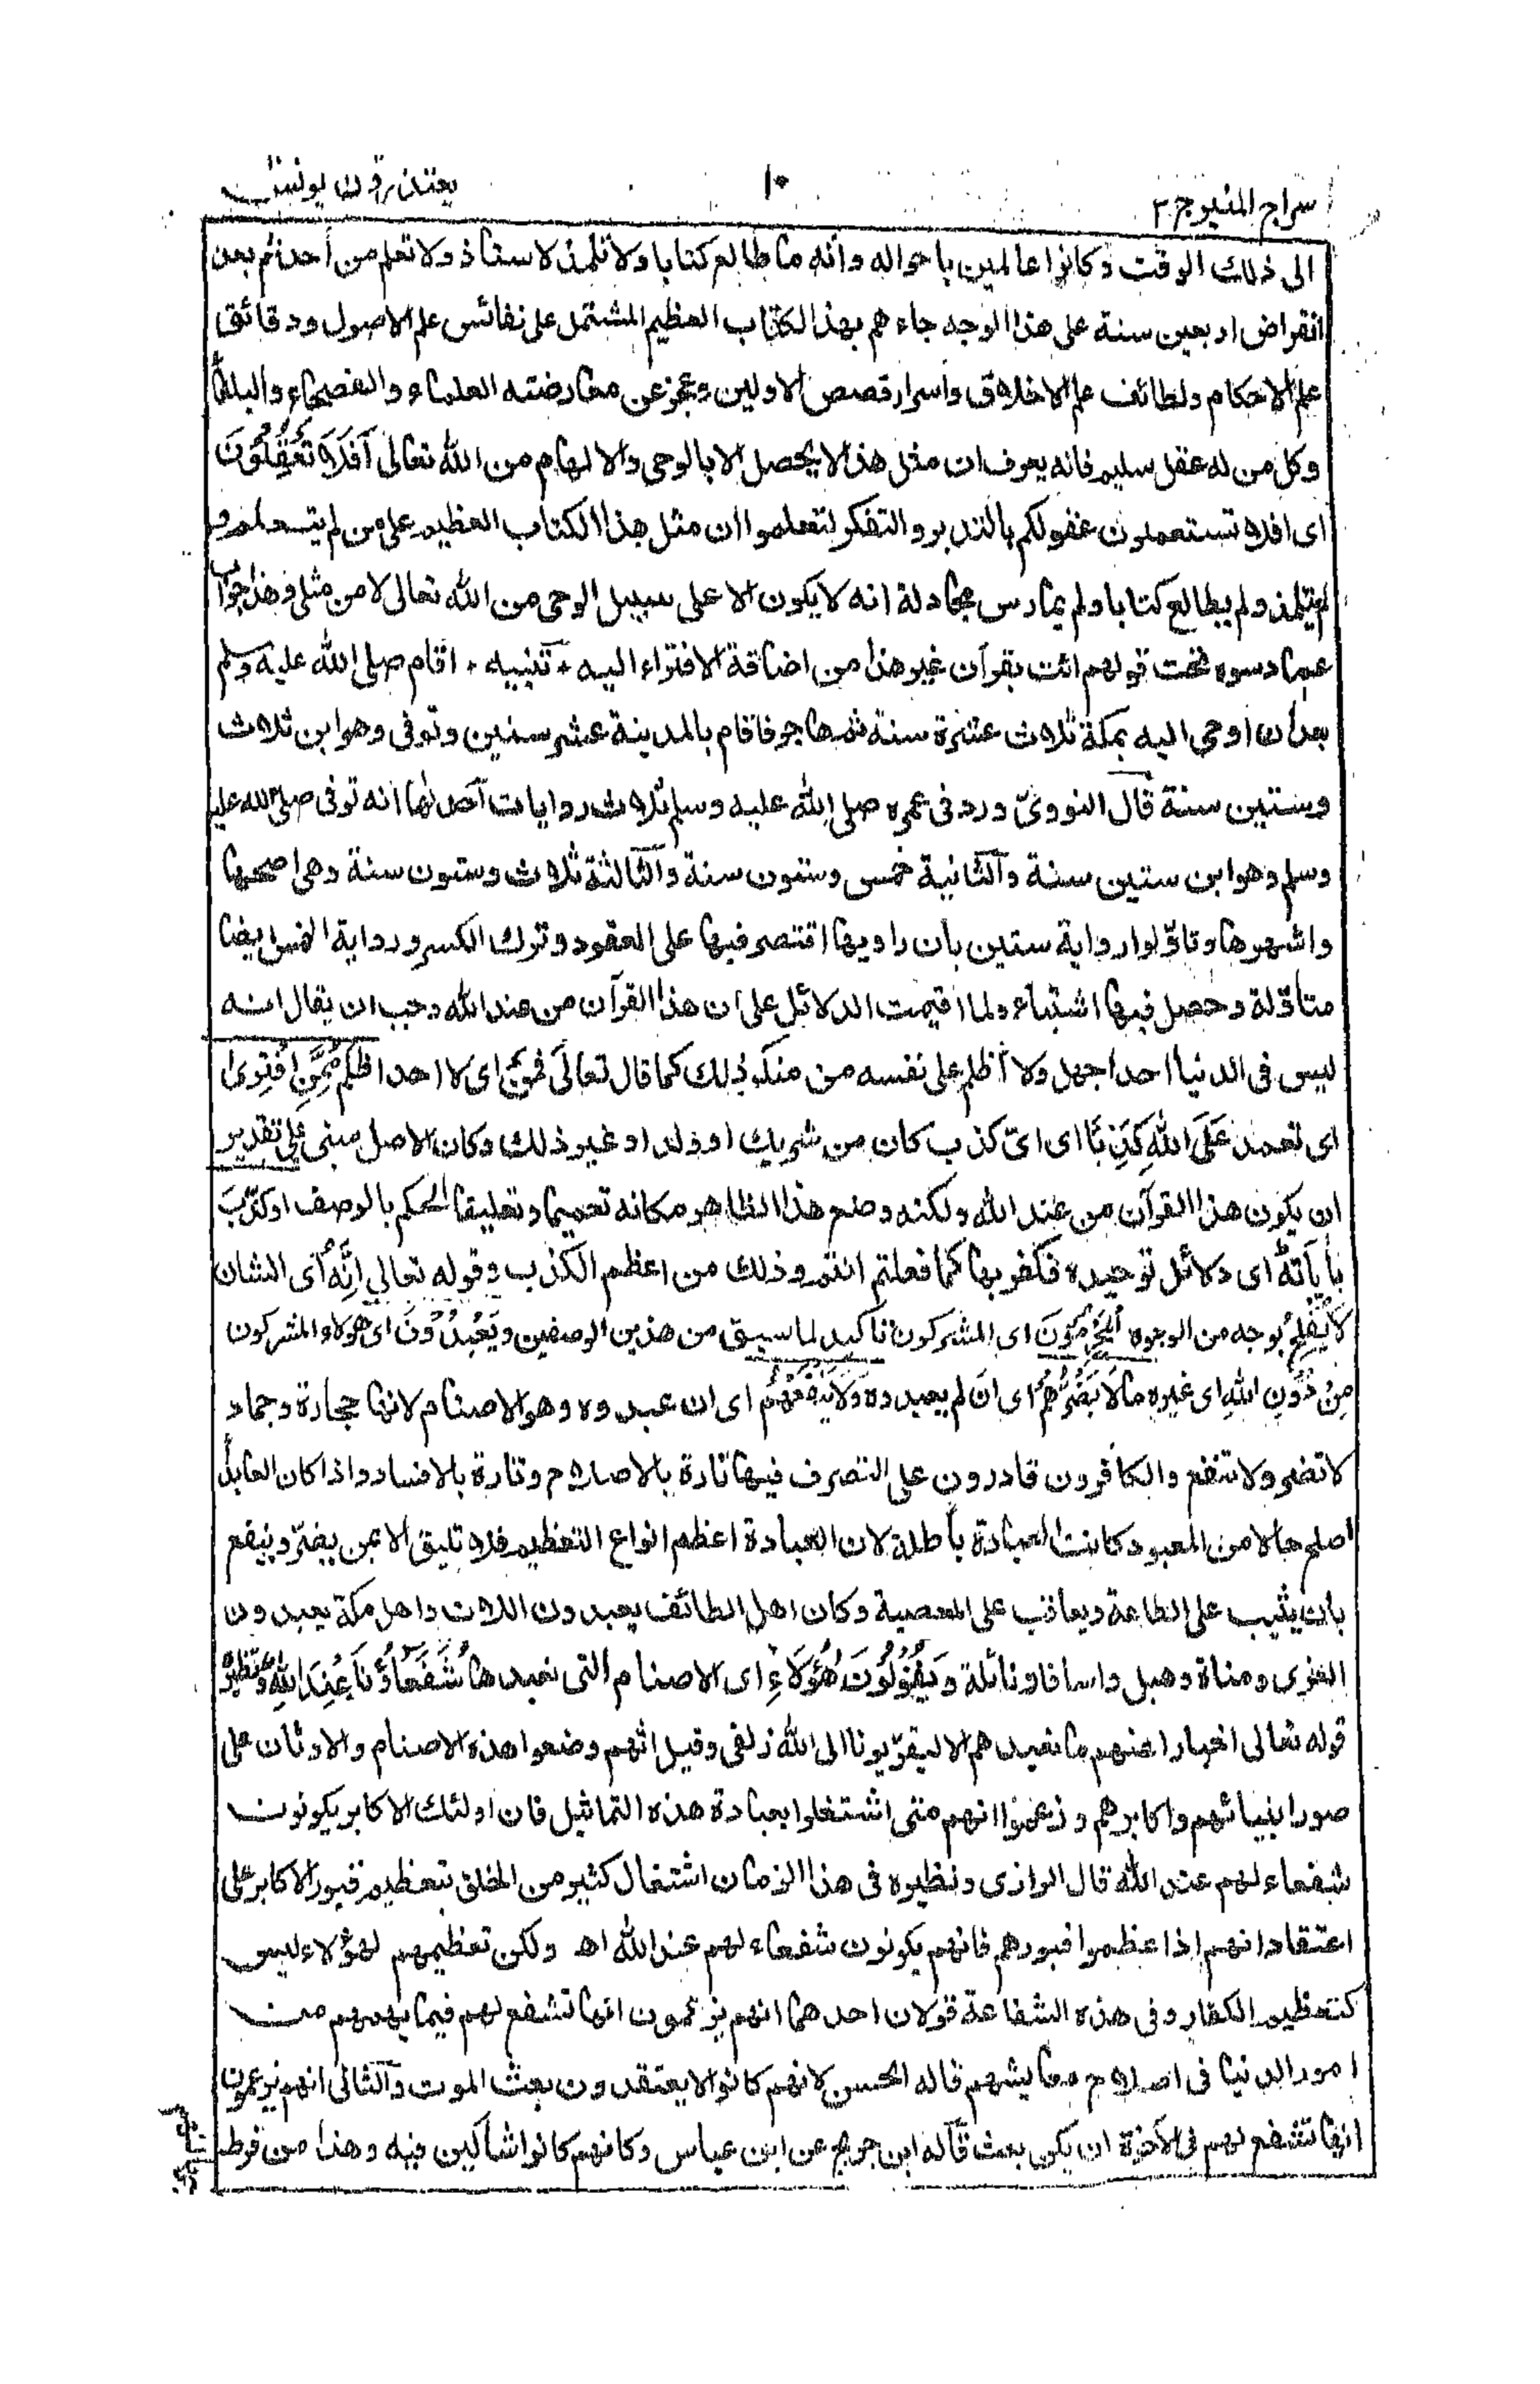 سراج المنير ج ٢
١٠
يعتذرون يونس
الى ذلك الوقت وكانوا عالمين باحواله وأنه ما طالع كتابا ولا تلمذ لاستاذ ولا تعلم من أحد ثم بعد
انقراض اربعين سنة على هذا الوجه جاءهم بهذا الكتاب العظيم المشتمل على نفائس علم الاصول ودقائق
علم الاحكام ولطائف علم الاخلاق واسرار قصص الاولين وعجز عن معارضته العلماء والفصحاء والبلغاء
وكل من له عقل سليم فانه يعرف ان مثل هذا لا يحصل الا بالوحى والالهام من الله تعالى أَفَلَا تَعْقِلُونَ
اى افلا تستعملون عقولكم بالتدبر والتفكر لتعلموا ان مثل هذا الكتاب العظيم على من لم يتعلم و
لم يتلمذ ولم يطالع كتابا ولم يمارس مجادلة انه لا يكون الا على سبيل الوحى من الله تعالى لا من مثلى وهذا جواب
عما دسوه تحت قولهم ائت بقرآن غير هذا من اضافة الافتراء اليه * تنبيه * اقام صلى الله عليه وسلم
بعد ان اوحى اليه بمكة ثلاث عشرة سنة ثم هاجر فاقام بالمدينة عشر سنين وتوفى وهو ابن ثلاث
وستين سنة قال النووىّ ورد فى عمره صلى الله عليه وسلم ثلاث روايات احداها انه توفى صلى الله عليه
وسلم وهو ابن ستين سنة والثانية خمس وستون سنة والثالثة ثلاث وستون سنة وهى اصحها
واشهرها وتأوّلوا رواية ستين بان راويها اقتصر فيها على العقود وترك الكسر ورواية الخمس ايضا
متأوّلة وحصل فيها اشتباه ولما اقيمت الدلائل على ان هذا القرآن من عند الله وجب ان يقال انه
ليس فى الدنيا احد اجهل ولا أظلم على نفسه من منكر ذلك كما قال تعالى فَمَنْ اى لا احد اظلم مِمَّنِ افْتَرَى
اى تعمد عَلَى اللهِ كَذِبًا اى اىّ كذب كان من شريك او ولد او غير ذلك وكان الاصل مبنى على تقدير
ان يكون هذا القرآن من عند الله ولكنه وضع هذا الظاهر مكانه تعميما وتعليقا للحكم بالوصف او كَذَّبَ
بِآيَاتِهِ اى دلائل توحيده فكفر بها كما فعلتم انتم وذلك من اعظم الكذب وقوله تعالى اِنَّهُ أى الشان
لَا يُفْلِحُ بوجه من الوجوه الْمُجْرِمُونَ اى المشركون تاكيد لما سبق من هذين الوصفين وَيَعْبُدُونَ اى هؤلاء المشركون
مِنْ دُونِ اللهِ اى غيره مَا لَا يَضُرُّهُمْ اى ان لم يعبدوه وَلَا يَنْفَعُهُمْ اى ان عبدوه وهو الاصنام لانها حجارة وجماد
لا تضر ولا تنفع والكافرون قادرون على التصرف فيها تارة بالاصلاح وتارة بالافساد واذا كان العابد
اصلح حالا من المعبود كانت العبادة باطلة لان العبادة اعظم انواع التعظيم فلا تليق الا بمن يضرّ وينفع
بان يثيب على الطاعة ويعاقب على المعصية وكان اهل الطائف يعبدون اللات واهل مكة يعبدون
العزى ومناة وهبل واسافا ونائلة وَيَقُولُونَ هٰؤُلَاءِ اى الاصنام التى نعبدها شُفَعَاؤُنَا عِنْدَ اللهِ ونظيره
قوله تعالى اخبارا عنهم ما نعبدهم الا ليقرّبونا الى الله زلفى وقيل انهم وضعوا هذه الاصنام والاوثان على
صور انبيائهم واكابرهم وزعموا انهم متى اشتغلوا بعبادة هذه التماثيل فان اولئك الاكابر يكونون
شفعاء لهم عند الله قال الرازى ونظيره فى هذا الزمان اشتغال كثير من الخلق بتعظيم قبور الاكابر على
اعتقاد انهم اذا عظموا قبورهم فانهم يكونون شفعاء لهم عند الله اھ ولكن تعظيمهم لهؤلاء ليس
كتعظيم الكفار وفى هذه الشفاعة قولان احدهما انهم يزعمون انها تشفع لهم فيما يهمهم من
امور الدنيا فى اصلاح معايشهم قاله الحسن لانهم كانوا لا يعتقدون بعث الموت والثانى انهم يزعمون
انها تشفع لهم فى الآخرة ان يكن بعث قاله ابن جريج عن ابن عباس وكانهم كانوا شاكين فيه وهذا من فرط